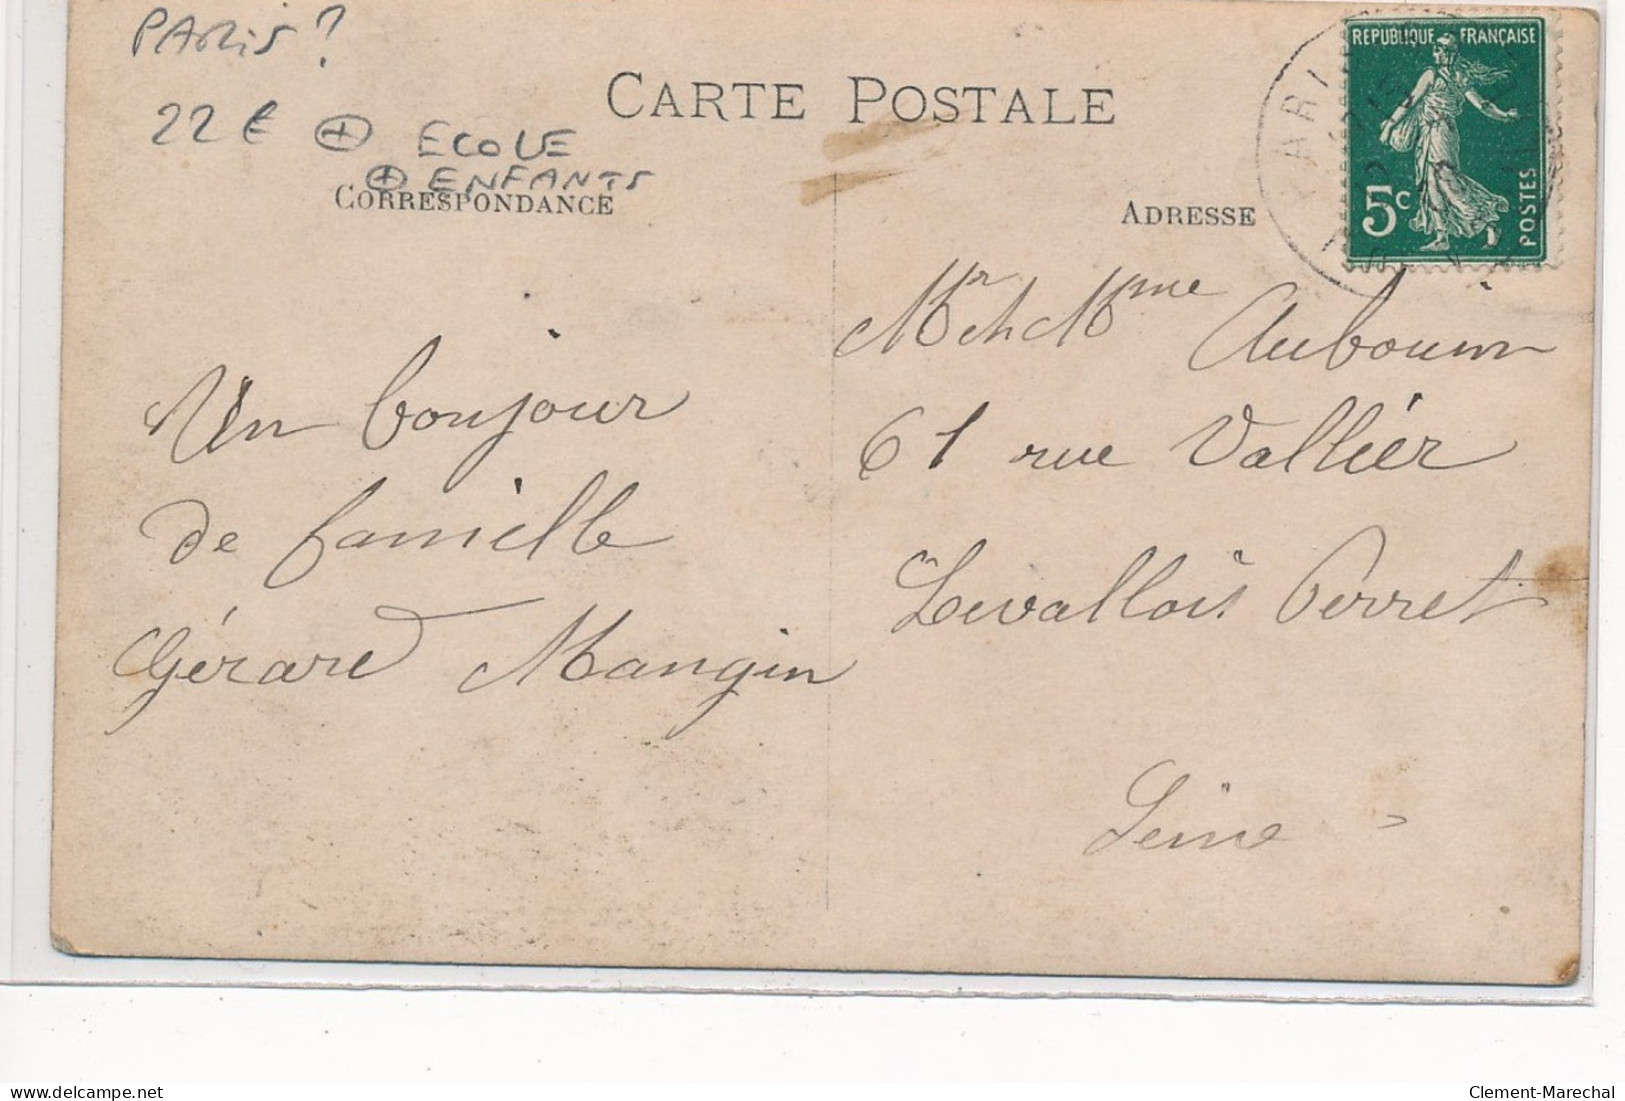 PARIS ?
22 € ⊕ ECOLE
⊕ ENFANTS
CARTE POSTALE
CORRESPONDANCE
ADRESSE
REPUBLIQUE FRANÇAISE
5c
POSTES
PARI
Un bonjour
de famille
Gérard Mangin
Mr et Mme Aubouin
61 rue Vallier
Levallois Perret
Seine
delcampe.net
Clement-Marechal